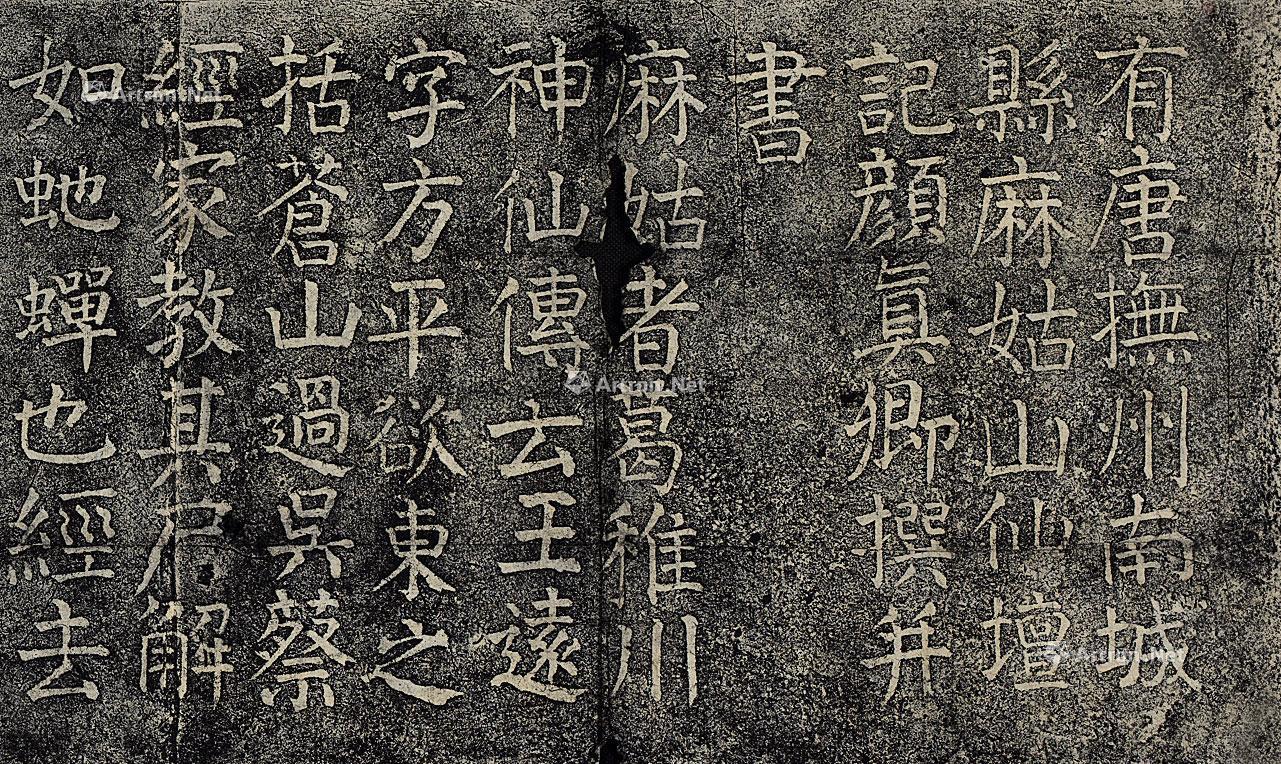 有唐撫州南城
縣麻姑山仙壇
記顏真卿撰并
書
麻姑者葛稚川
神仙傳云王遠
字方平欲東之
括蒼山過吳蔡
經家教其尸解
如虵蟬也經去
Artron.Net
Artron.Net
Artron.Net